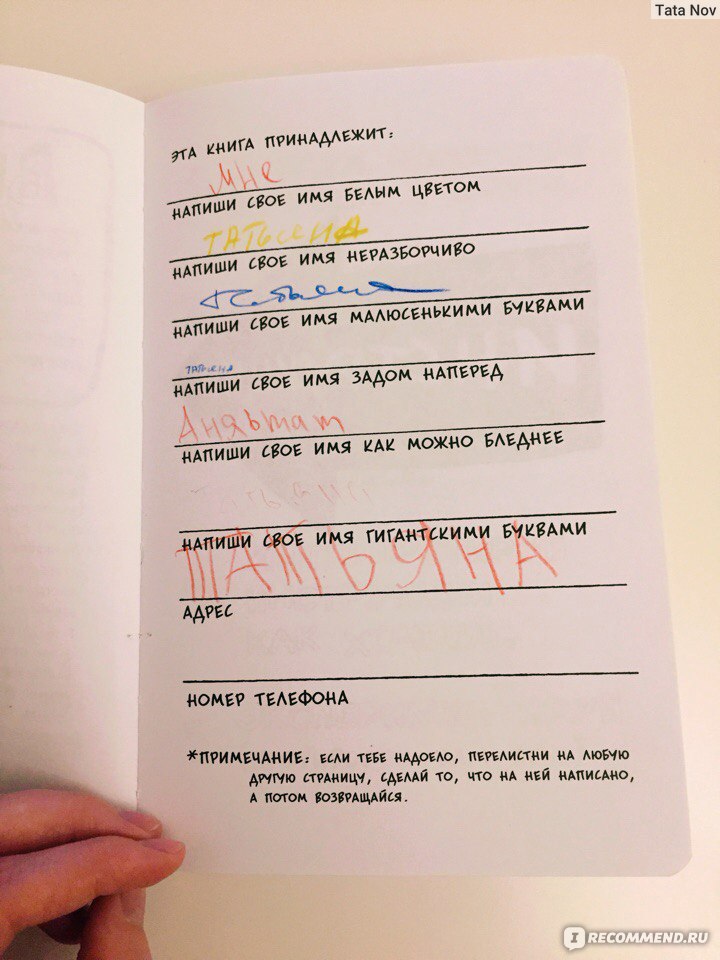 Tata Nov
ЭТА КНИГА ПРИНАДЛЕЖИТ:
Мне
НАПИШИ СВОЕ ИМЯ БЕЛЫМ ЦВЕТОМ
ТАТЬЯНА
НАПИШИ СВОЕ ИМЯ НЕРАЗБОРЧИВО
Татьяна
НАПИШИ СВОЕ ИМЯ МАЛЮСЕНЬКИМИ БУКВАМИ
ТАТЬЯНА
НАПИШИ СВОЕ ИМЯ ЗАДОМ НАПЕРЕД
Аняьтат
НАПИШИ СВОЕ ИМЯ КАК МОЖНО БЛЕДНЕЕ
Татьяна
НАПИШИ СВОЕ ИМЯ ГИГАНТСКИМИ БУКВАМИ
ТАТЬЯНА
АДРЕС
НОМЕР ТЕЛЕФОНА
*ПРИМЕЧАНИЕ: ЕСЛИ ТЕБЕ НАДОЕЛО, ПЕРЕЛИСТНИ НА ЛЮБУЮ
ДРУГУЮ СТРАНИЦУ, СДЕЛАЙ ТО, ЧТО НА НЕЙ НАПИСАНО,
А ПОТОМ ВОЗВРАЩАЙСЯ.
I RECOMMEND.RU